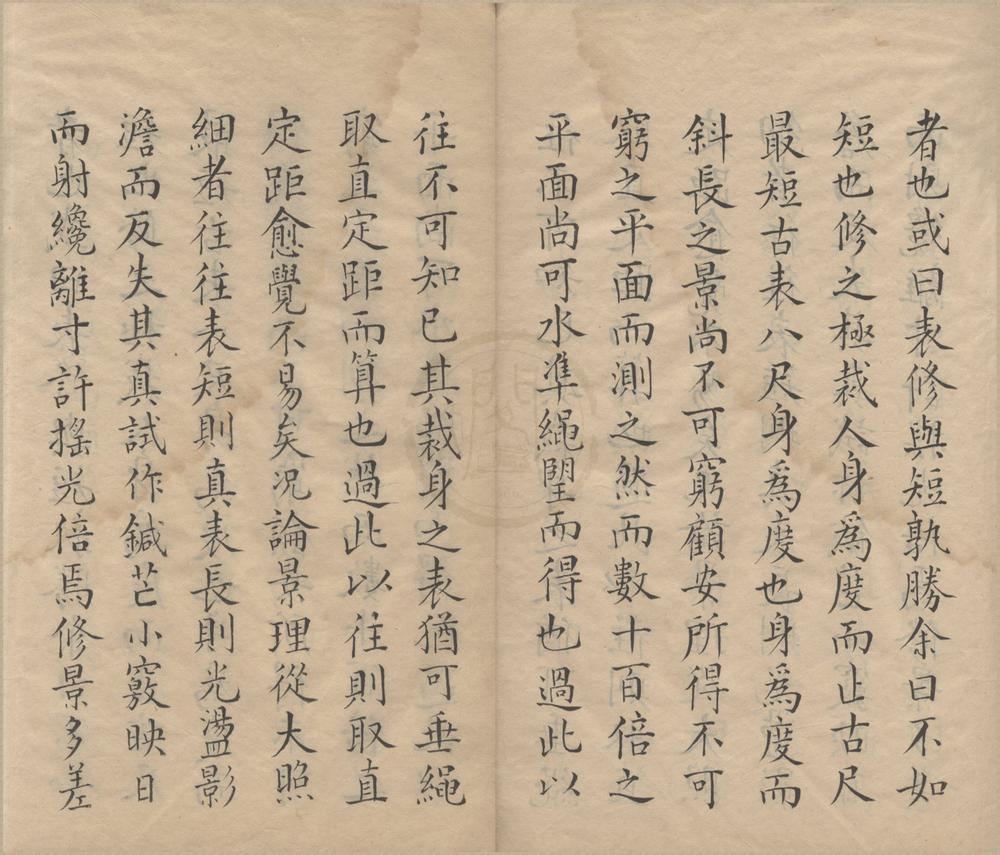 者也或曰表修與短孰勝余曰不如
短也修之極裁人身爲度而止古尺
最短古表八尺身爲度也身爲度而
斜長之景尚不可窮顧安所得不可
窮之平面而測之然而數十百倍之
平面尚可水準繩朢而得也過此以
往不可知已其裁身之表猶可垂繩
取直定距而算也過此以往則取直
定距愈覺不易矣况論景理從大照
細者往往表短則真表長則光盪影
澹而反失其真試作鍼芒小竅映日
而射纔離寸許搖光倍焉修景多差